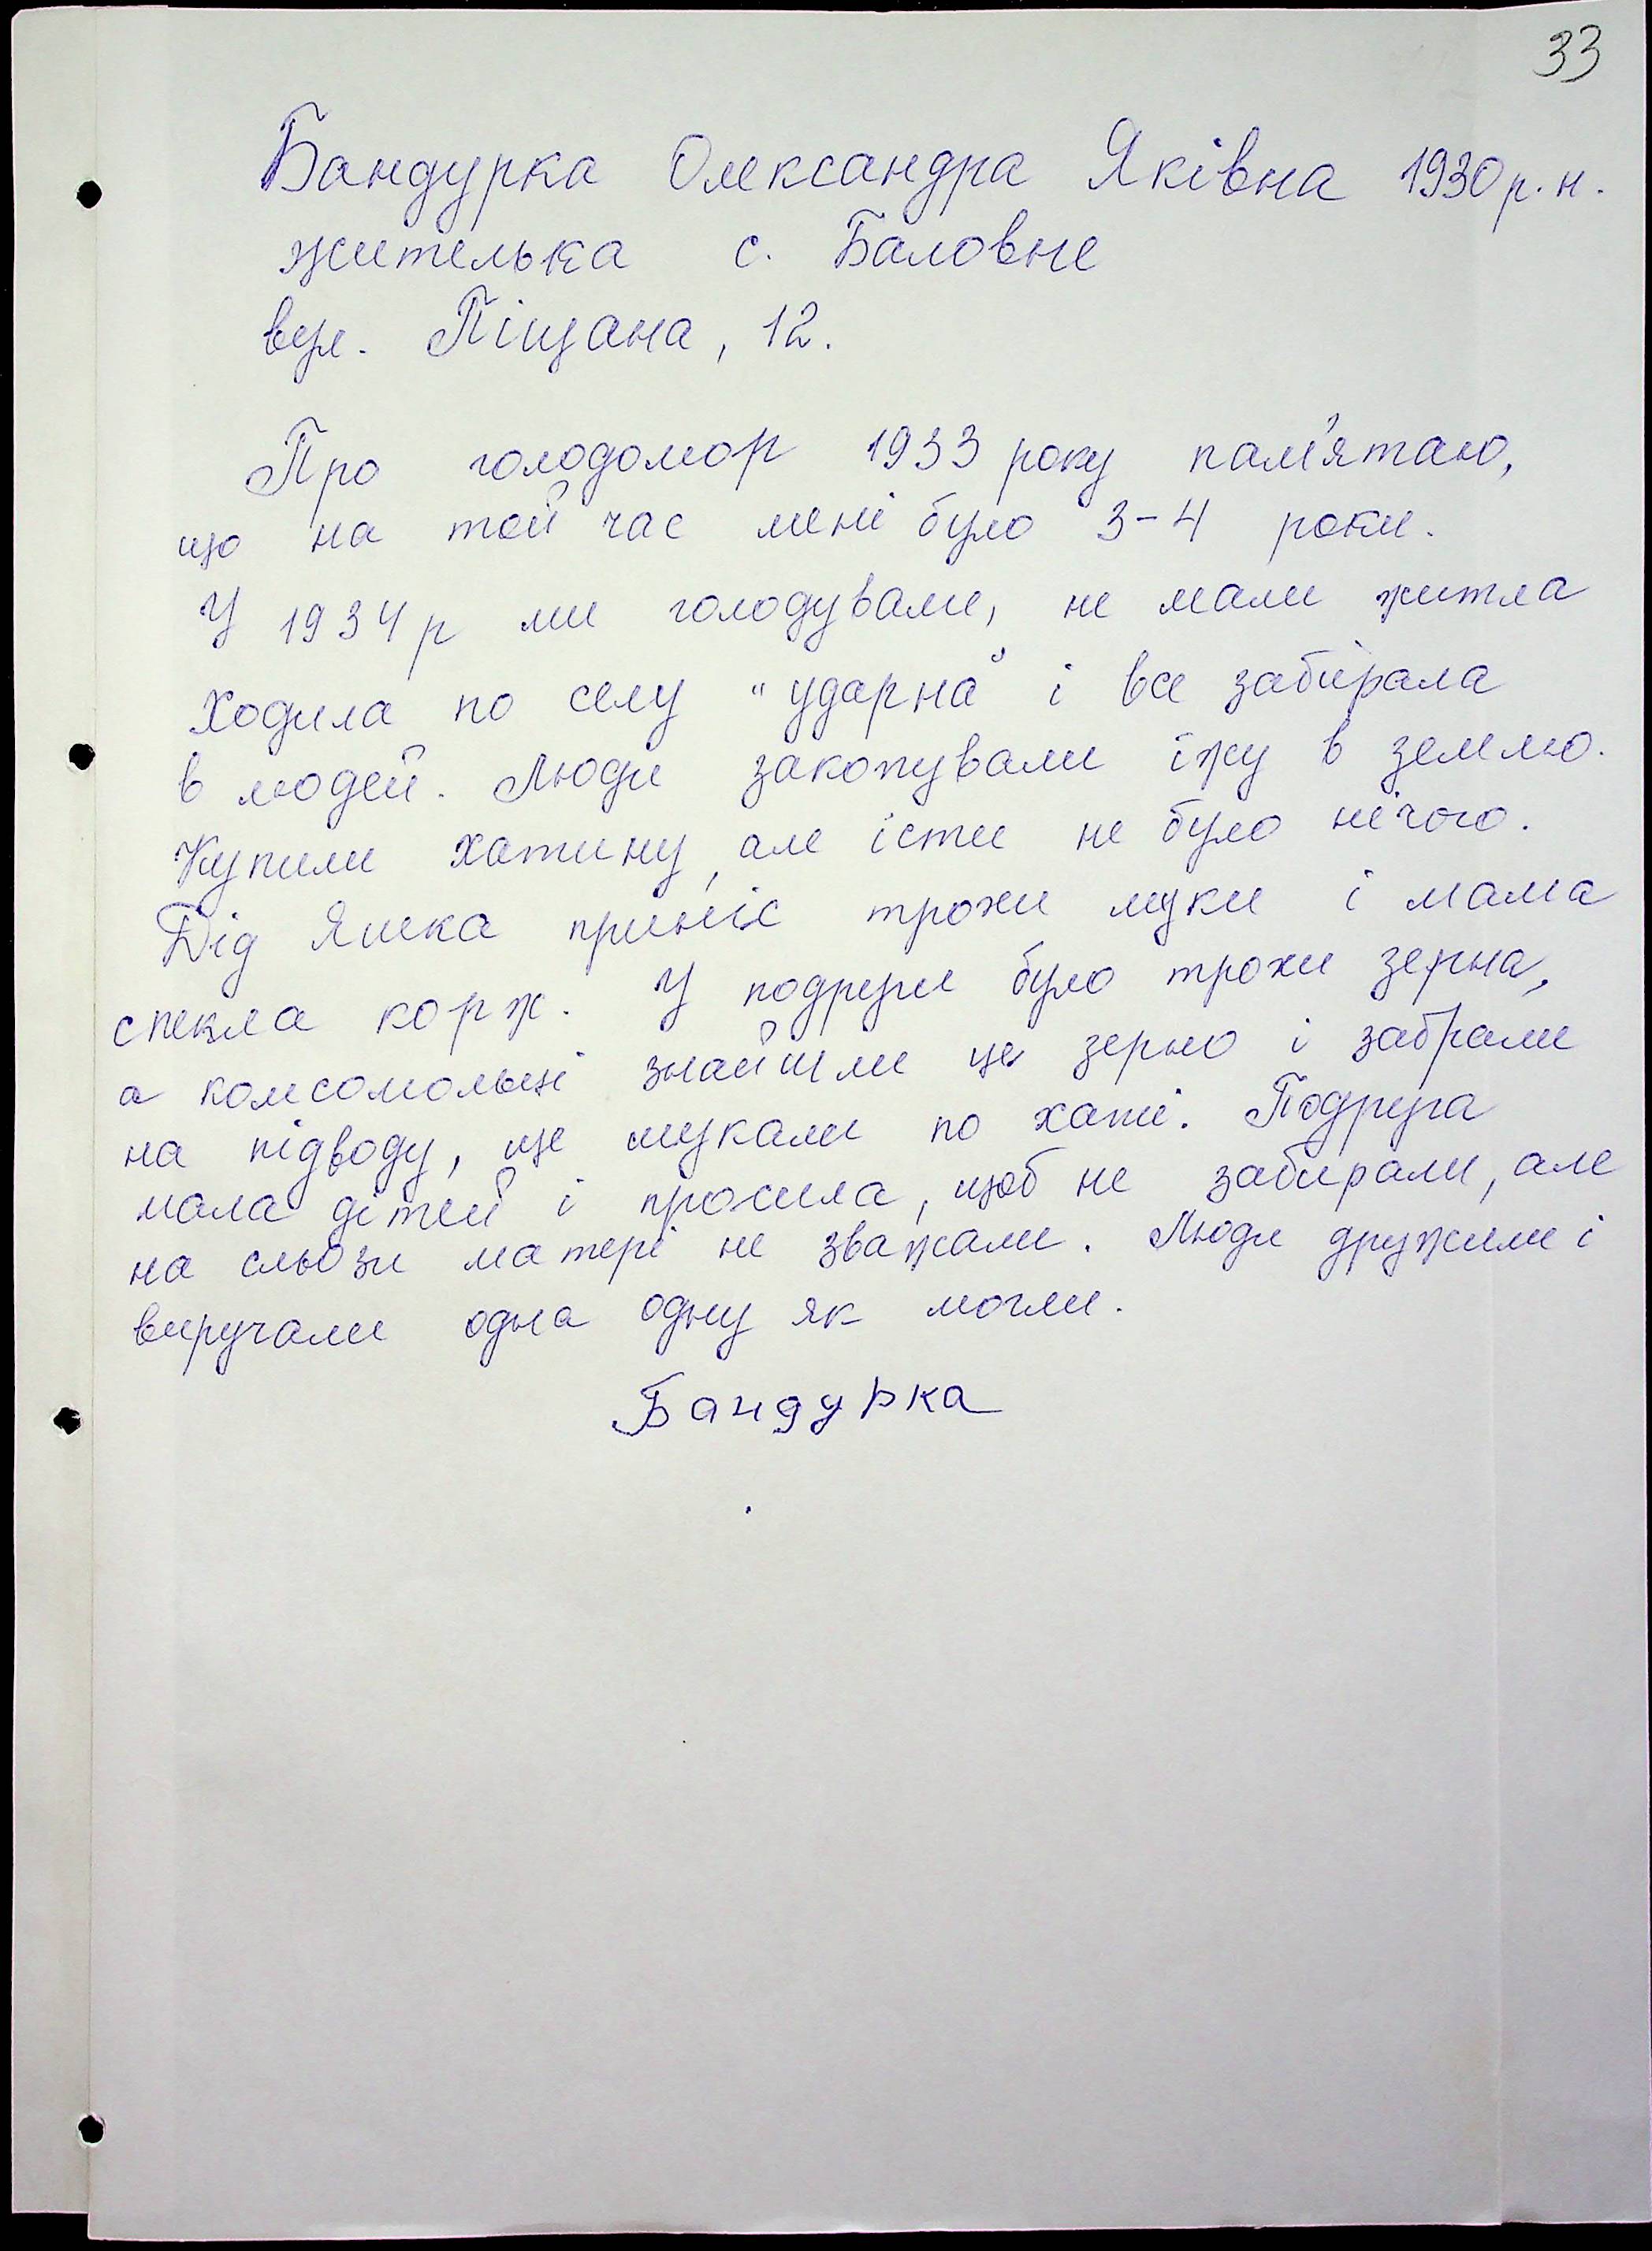 33
Бандурка Олександра Яківна 1930 р. н.
жителька с. Баловне
вул. Піщана, 12.
Про голодомор 1933 року пам'ятаю,
що на той час мені було 3-4 роки.
У 1934 р ми голодували, не мали житла
Ходила по селу "ударна" і все забирала
в людей. Люди закопували їжу в землю.
Купили хатину, але їсти не було нічого.
Дід Яшка приніс трохи муки і мама
спекла корж. У подруги було трохи зерна,
а комсомольці знайшли це зерно і забрали
на підводу, ще шукали по хаті. Подруга
мала дітей і просила, щоб не забирали, але
на сльози матері не зважали. Люди дружили і
виручали одна одну як могли.
Бандурка